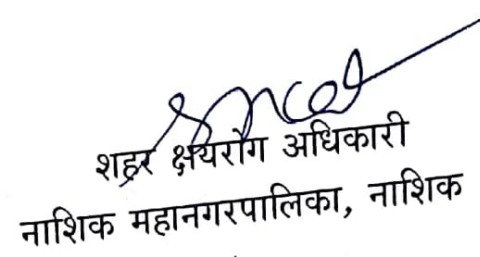 शहर क्षयरोग अधिकारी
नाशिक महानगरपालिका, नाशिक